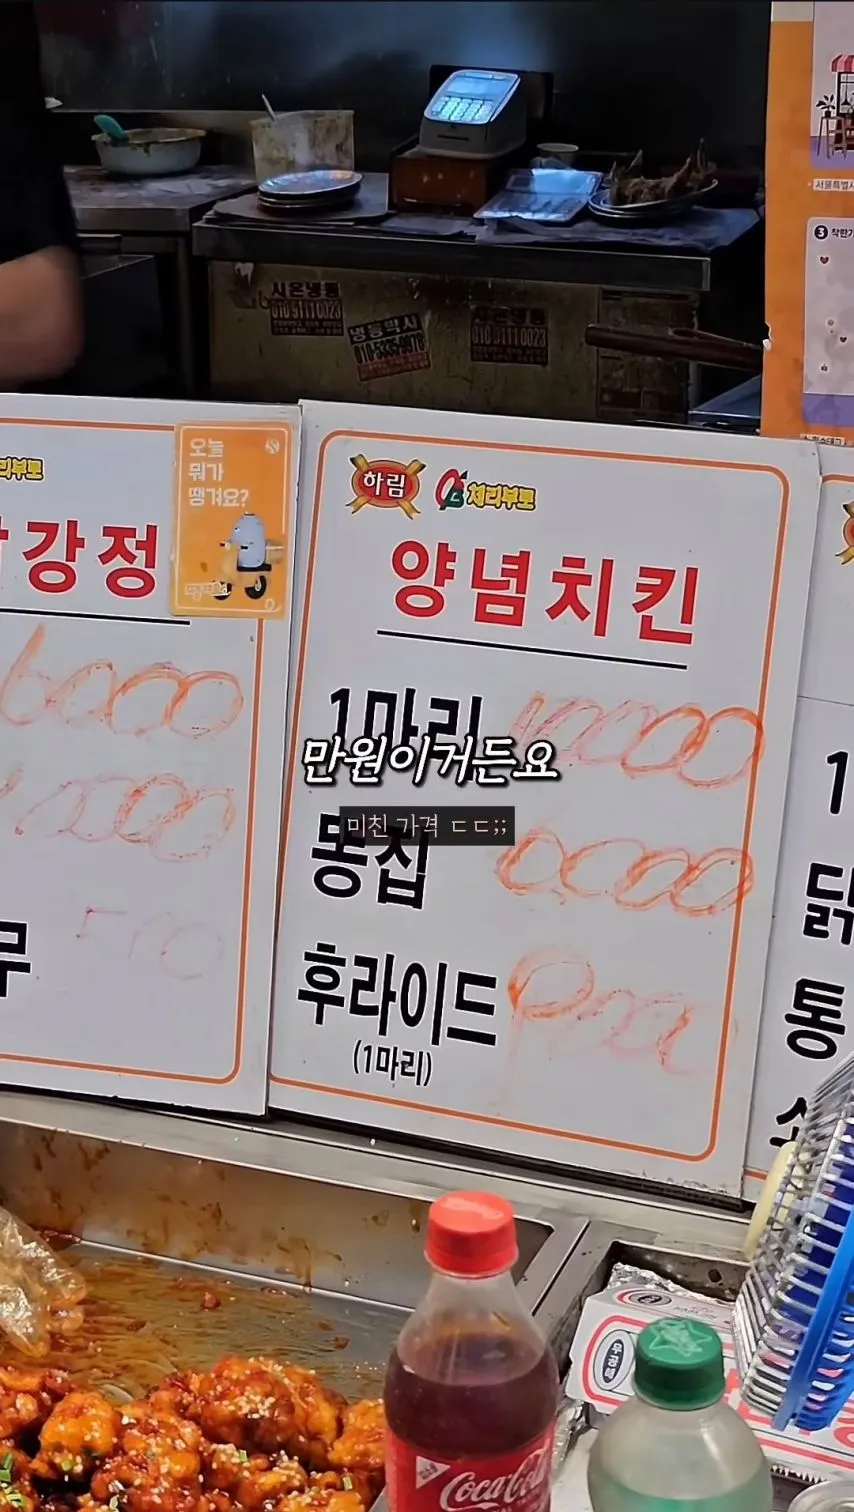 서울특별시
3 착한가
시온냉동
010 9111 0023
냉동박사
010-5335-9978
시온냉동
010 9111 0023
체리부로
강정
오늘
뭐가
땡겨요?
땡겨요
6000
000
500
무
하림
체리부로
양념치킨
1마리 10000
만원이거든요
미친 가격 ㄷㄷ;;
똥집
후라이드
(1마리)
1
닭
통
Coca-Cola